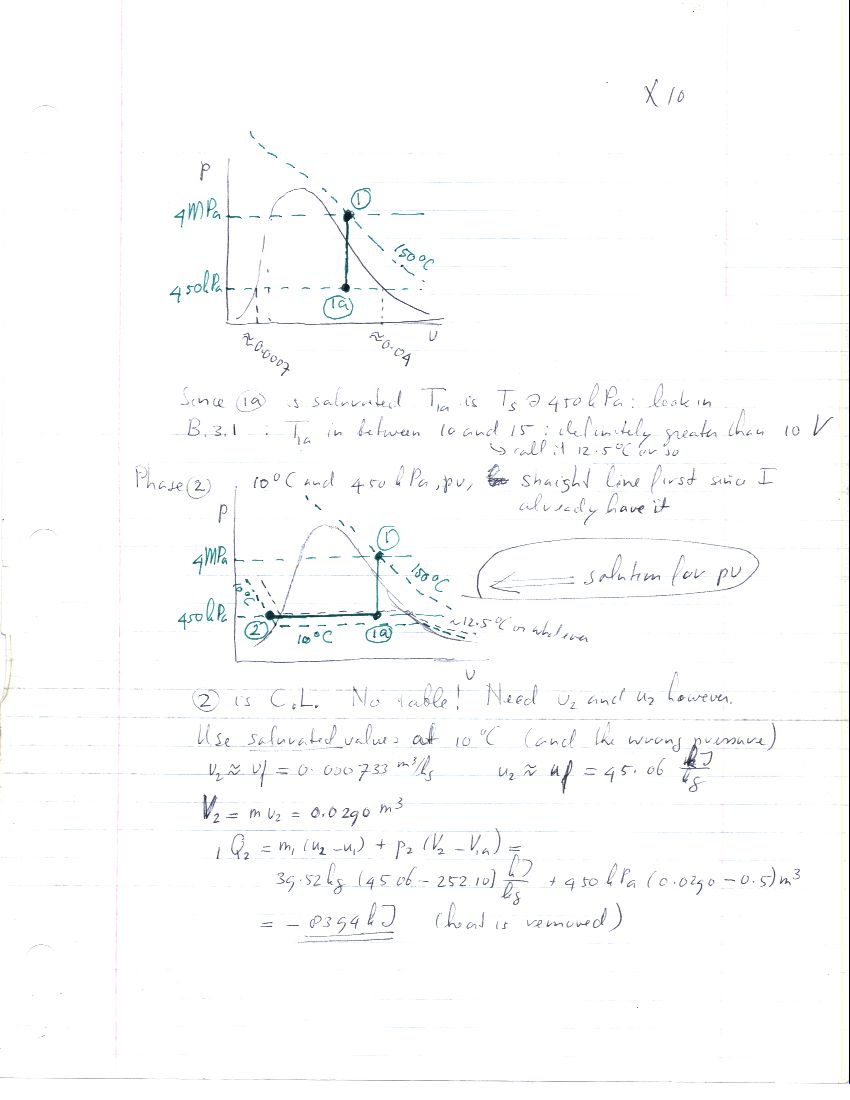 X 10
p
4MPa
1
150°C
450kPa
1a
≈0.0007
≈0.04
v
Since (1a) is saturated T1a is Ts @ 450kPa: look in
B.3.1 : T1a in between 10 and 15 : definitely greater than 10 V
↳ call it 12.5°C or so
Phase (2) 10°C and 450kPa, pv, straight line first since I
already have it
p
4MPa
1
150°C
← solution for pv
10°C
450kPa
2
10°C
1a
~12.5°C or whatever
v
(2) is C.L. No table! Need v2 and u2 however.
Use saturated values at 10°C (and the wrong pressure)
v2 ≈ vf = 0.000733 m³/kg u2 ≈ uf = 45.06 kJ/kg
V2 = m v2 = 0.0290 m³
1Q2 = m1(u2-u1) + p2(V2-V1a) =
39.52kg (45.06-252.10) kJ/kg + 450kPa(0.0290-0.5)m³
= -8394kJ (heat is removed)